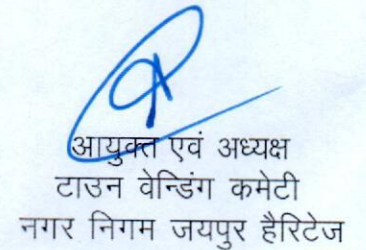 आयुक्त एवं अध्यक्ष
टाउन वेन्डिंग कमेटी
नगर निगम जयपुर हैरिटेज